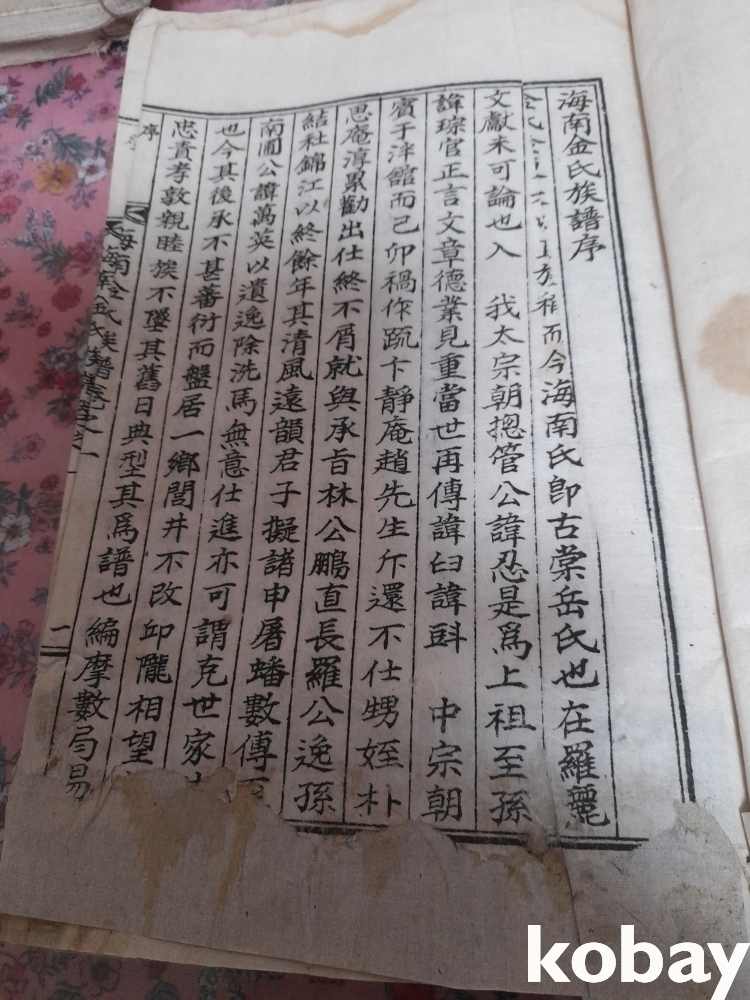 海南金氏族譜序
而今海南氏卽古棠岳氏也在羅麗
文獻未可論也入 我太宗朝摠管公諱忍是爲上祖至孫
諱琮官正言文章德業見重當世再傳諱臼諱㪷 中宗朝
賓于泮舘而己卯禍作疏卞靜庵趙先生斥還不仕甥姪朴
思庵淳累勸出仕終不屑就與承旨林公鵬直長羅公逸孫
結社錦江以終餘年其清風遠韻君子擬諸申屠蟠數傳
南圃公諱萬英以遺逸除洗馬無意仕進亦可謂克世家
也今其後承不甚蕃衍而盤居一鄉閭井不改邱隴相望
忠責孝敦親睦族不墜其舊日典型其爲譜也編摩數局易
序
海南金氏族譜
一
kobay